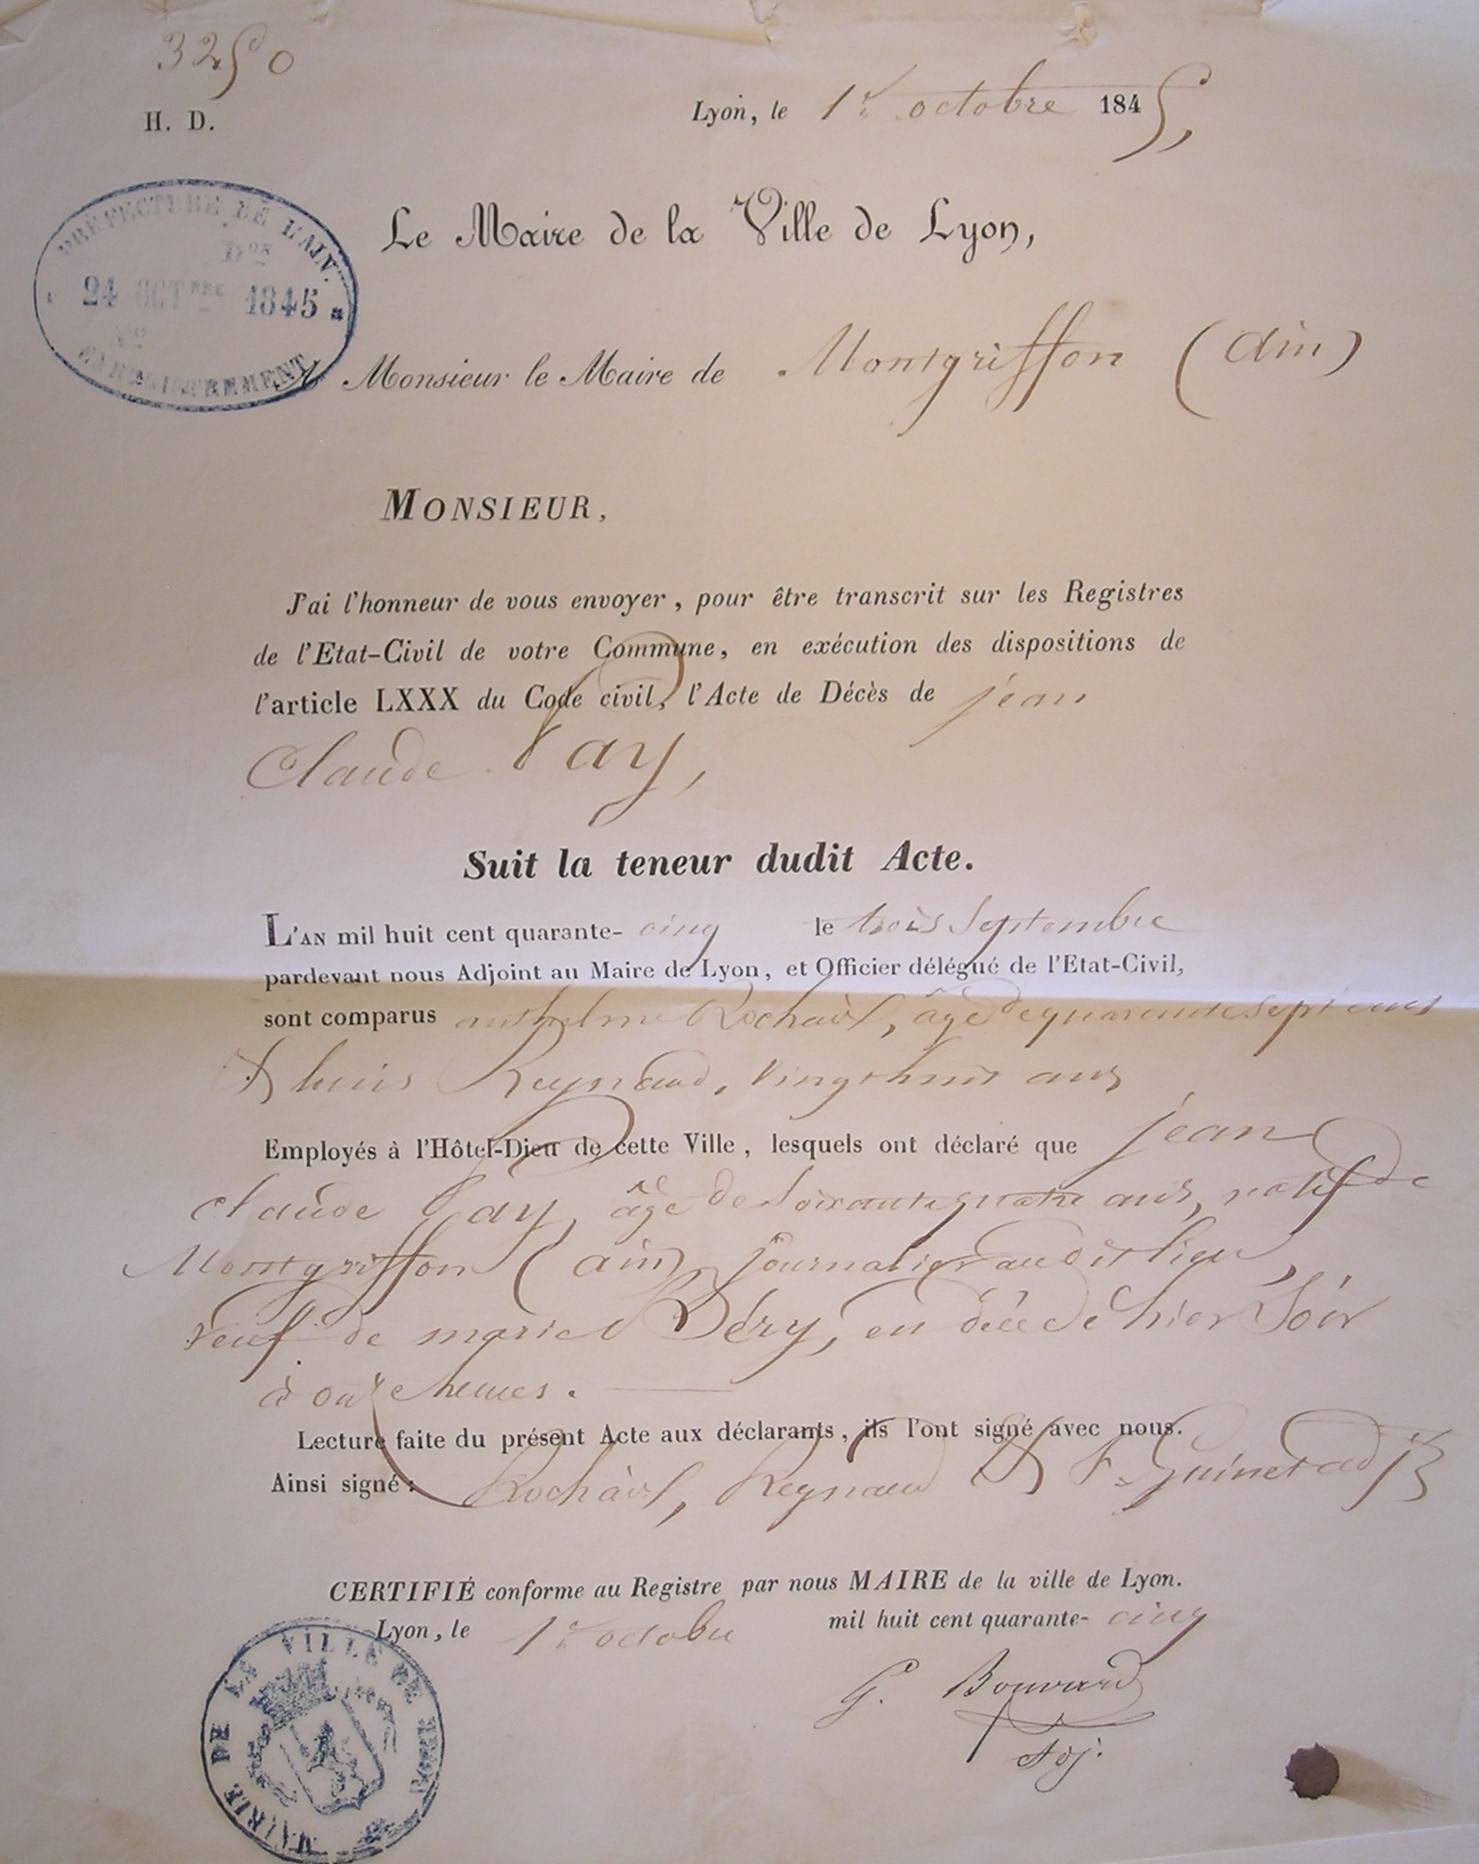 3250
H. D.
Lyon, le 1er octobre 1845,
PRÉFECTURE DE L'AIN.
Don
24 OCTBRE 1845
No
ENREGISTREMENT
Le Maire de la Ville de Lyon,
A Monsieur le Maire de Montgriffon (ain)
MONSIEUR,
J'ai l'honneur de vous envoyer, pour être transcrit sur les Registres
de l'Etat-Civil de votre Commune, en exécution des dispositions de
l'article LXXX du Code civil, l'Acte de Décès de jean
Claude Pay,
Suit la teneur dudit Acte.
L'AN mil huit cent quarante- cinq le trois Septembre
pardevant nous Adjoint au Maire de Lyon, et Officier délégué de l'Etat-Civil,
sont comparus anthelme Rochaix, âgé de quarante sept ans
& louis Reynaud, vingt huit ans
Employés à l'Hôtel-Dieu de cette Ville, lesquels ont déclaré que jean
claude Pay, âgé de soixante quatre ans, natif de
Montgriffon (ain) journalier audit lieu,
veuf de marie Béry, en décédé hier Soir
à onze heures.
Lecture faite du présent Acte aux déclarants, ils l'ont signé avec nous.
Ainsi signé: Rochaix, Reynaud & F. Guinet adjt
CERTIFIÉ conforme au Registre par nous MAIRE de la ville de Lyon.
Lyon, le 1er octobre mil huit cent quarante- cinq
G. Bouvard
Adj.
MAIRIE DE LA VILLE DE LYON